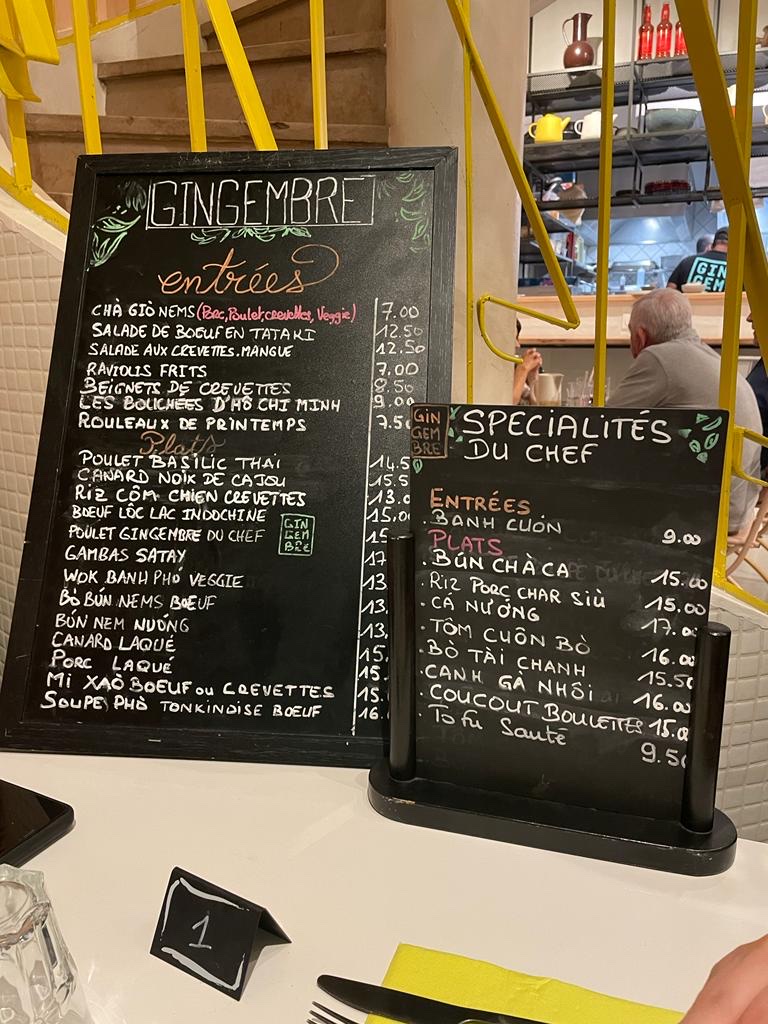 GINGEMBRE
entrées
CHÀ GIÒ NEMS (Porc, Poulet, crevettes, Veggie) 7.00
SALADE DE BOEUF EN TATAKI 12.50
SALADE AUX CREVETTES.MANGUE 12.50
RAVIOLIS FRITS 7.00
BEIGNETS DE CREVETTES 8.50
LES BOUCHÉES D'HÔ CHI MINH 9.00
ROULEAUX DE PRINTEMPS 7.50
Plats
POULET BASILIC THAI 14.5
CANARD NOIX DE CAJOU 15.5
RIZ CÔM CHIEN CREVETTES 13.0
BOEUF LÔC LAC INDOCHINE 15.00
POULET GINGEMBRE DU CHEF 15
GIN
GEM
BRE
GAMBAS SATAY
WOK BANH PHÓ VEGGIE 13
BÒ BÚN NEMS BOEUF 13
BÚN NEM NUÓNG 13.
CANARD LAQUÉ 15.
PORC LAQUÉ 15.
MI XAÒ BOEUF OU CREVETTES 15.
SOUPE PHÒ TONKINOISE BOEUF 16.
GIN
GEM
BRE
SPECIALITÉS
DU CHEF
ENTRÉES
. BANH CUÓN 9.00
PLATS
. BÚN CHÀ CA 15.00
. RIZ PORC CHAR SIÙ 15.00
. CÁ NƯỚNG 17.00
. TÔM CUÔN BÒ 16.00
. BÒ TÀI CHANH 15.50
. CANH GÀ NHÔI 16.00
. COUCOUT BOULETTES 15.0
. Tofu Sauté 9.50
1
GIN
GEM